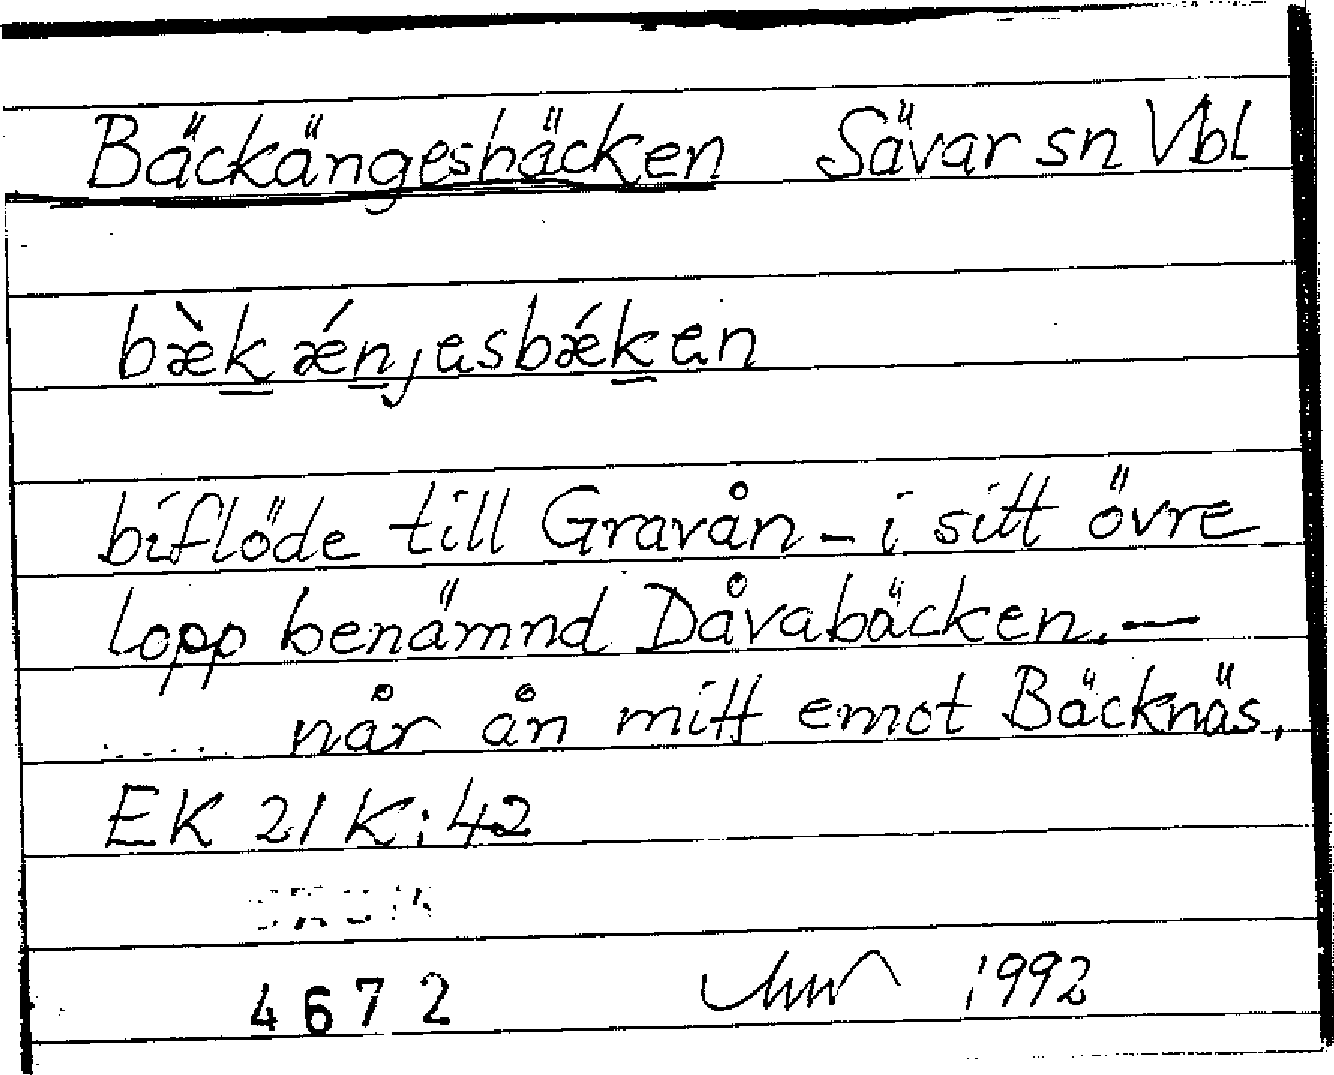 Bäckängesbäcken Sävar sn Vbl
bæ̀kǽnjesbǽken
biflöde till Gravån - i sitt övre
lopp benämnd Dåvabäcken. —
..... når ån mitt emot Bäcknäs.
EK 21K:42
4672 1992